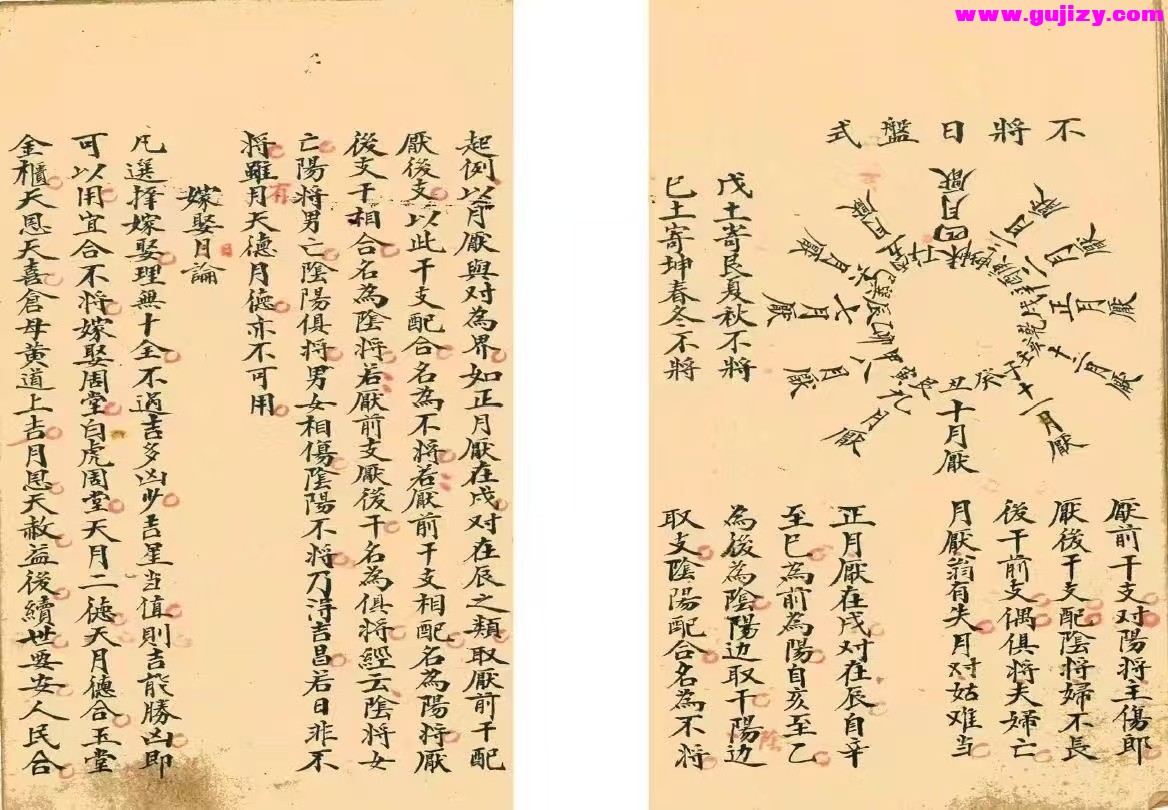 www.gujizy.com
不將日盤式
正月厭
二月厭
三月厭
四月厭
五月厭
六月厭
七月厭
八月厭
九月厭
十月厭
十一月厭
十二月厭
戊土寄艮夏秋不將
巳土寄坤春冬不將
厭前干支对陽將主傷郎
厭後干支配陰將婦不長
後干前支偶俱將夫婦亡
月厭翁有失月对姑难当
正月厭在戌对在辰自辛
至巳為前為陽自亥至乙
為後為陰陽边取干陽边
陰
取支陰陽配合名為不將
起例以月厭與对為界如正月厭在戌对在辰之類取厭前干配
厭後支以此干支配合名為不將若厭前干支相配名為陽將厭
後支干相合名為陰將若厭前支厭後干名為俱將經云陰將女
亡陽將男亡陰陽俱將男女相傷陰陽不將乃淂吉昌若日非不
將雖月天德月德亦不可用
有
嫁娶月論
日
凡選擇嫁娶理無十全不過吉多凶少吉星当值則吉能勝凶即
可以用宜合不將嫁娶周堂白虎周堂天月二德天月德合玉堂
金櫃天恩天喜倉母黄道上吉月恩天赦益後續世要安人民合